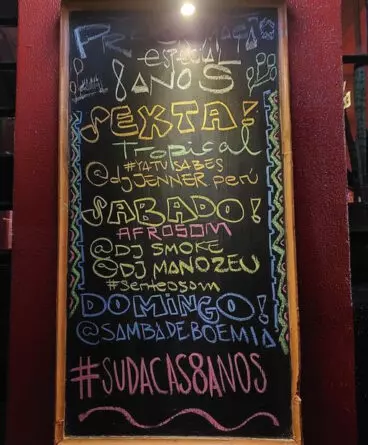 especial
8 ANOS
SEXTA!
Tropical
#YATUSABES
@djJENNER perú
SABADO!
AFROSOM
@DJ SMOKE
@DJ MANOZEU
#senteosom
DOMINGO!
@SAMBADEBOEMIA
#SUDACAS8ANOS